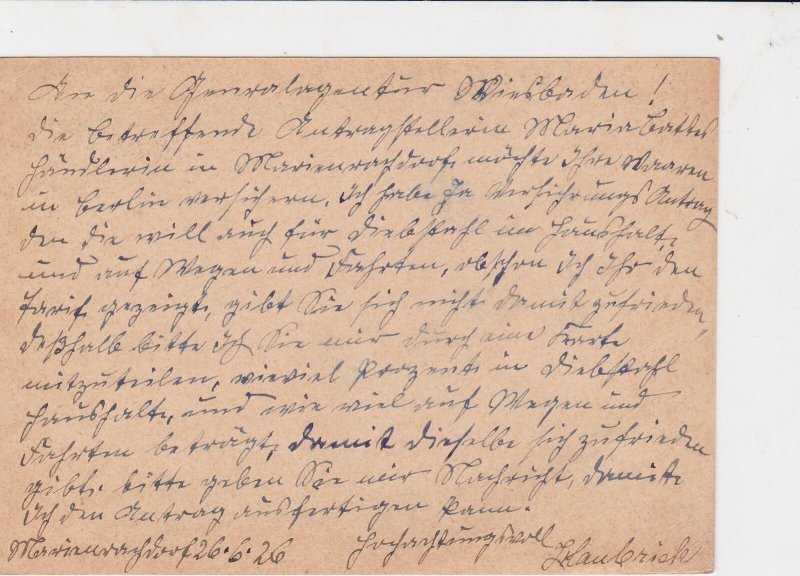 An die Genralagentur Wiesbaden!
die betreffende Antragstellerin Maria Battes
Händlerin in Marienrachdorf, möchte ihre Waaren
in Berlin versichern, ich habe Ja Versichrungs Antrag
den die will auch für Diebstahl im Haushalt,
und auf Wegen und Fahrten, obschon ich ihr den
Tarif gezeigt, gibt Sie sich nicht damit zufrieden,
deßhalb bitte ich Sie mir durch eine Karte
mitzuteilen, wieviel Prozent in Diebstahl
Haushalt, und wie viel auf Wegen und
Fahrten beträgt, damit dieselbe sich zufrieden
gibt. bitte geben Sie mir Nachricht, damit
ich den Antrag ausfertigen kann.
Marienrachdorf 26.6.26 Hochachtungsvoll Haubrich